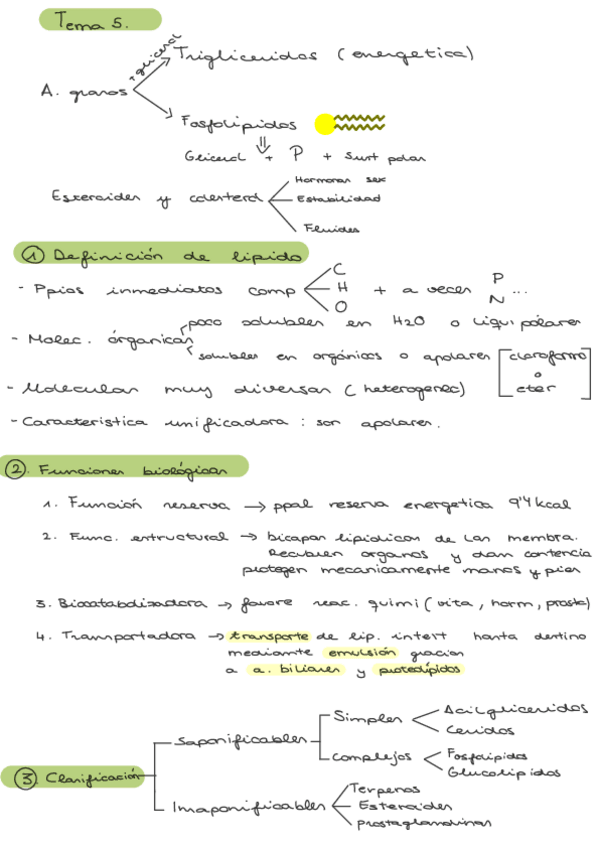 Tema 5.
+ glicerol
Trigliceridos ( energetica)
A. grasos
Fosfolipidos
Glicerol + P + Sust polar
Esteroides y colesterol
Hormonas sex
Estabilidad
Fluidez
① Definición de lipido
- Ppios inmediatos comp C H O + a veces P N ...
- Molec. órganicas poco solubles en H2O o liqui polares
solubles en orgánicos o apolares [cloroformo o eter]
- Moleculas muy diversas ( heterogeneo)
- Caracteristica unificadora : son apolares.
②. Funciones biológicas
1. Función reserva → ppal reserva energetica 9'4 kcal
2. Func. estructural → bicapas lipidicas de las membra.
Recubren organos y dan contencia
protegen mecanicamente manos y pies
3. Biocatabolizadora → favore reac. quimi ( vita, horm, prosta)
4. Transportadora → transporte de lip. intest hasta destino
mediante emulsión gracias
a a. biliares y proteolípidos
③. Clasificación
Saponificables
Simples
Acilgliceridos
Ceridos
Complejos
Fosfolipidos
Glucolipidos
Insaponificables
Terpenos
Esteroides
prostaglandinas